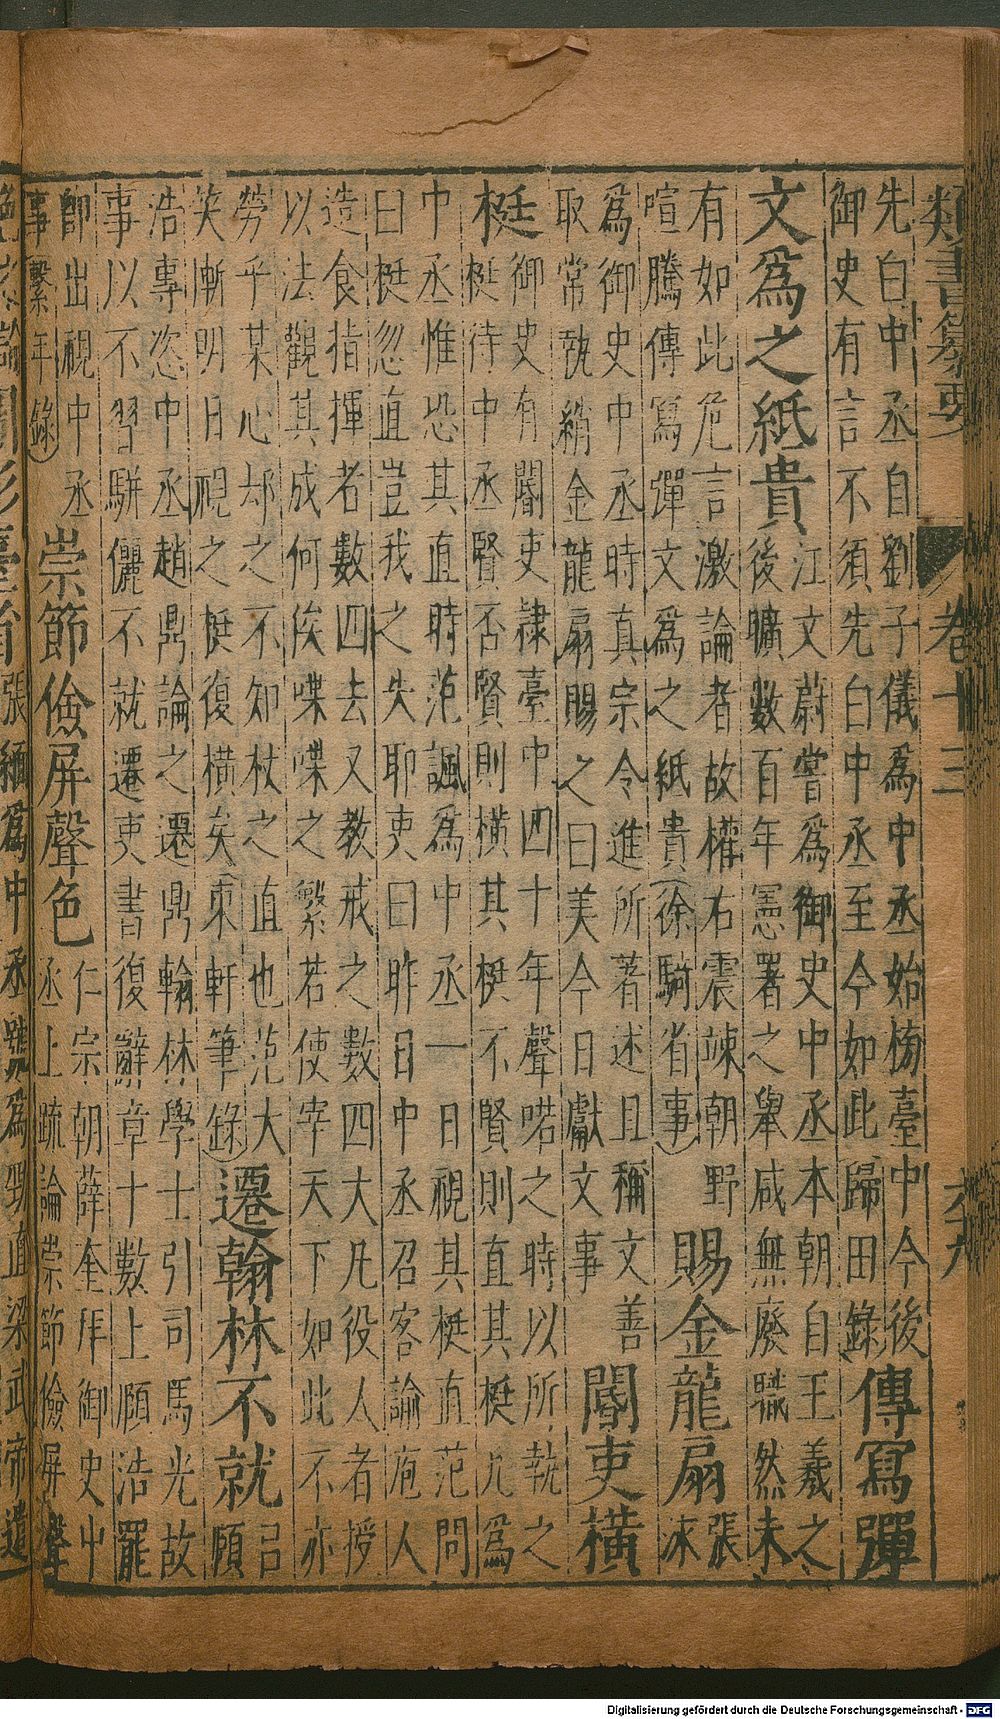 類書纂要 卷十三 六九
先白中丞自劉子儀爲中丞始榜臺中今後
御史有言不須先白中丞至今如此歸田錄
傳寫彈
文爲之紙貴
江文蔚嘗爲御史中丞本朝自王義之
後曠數百年憲署之舉咸無廢職然未
有如此危言激論者故權右震竦朝野
喧騰傳寫彈文爲之紙貴(徐騎省事)
賜金龍扇
張
洙
爲御史中丞時真宗令進所著述且稱文善
取常執綃金龍扇賜之曰美今日獻文事
閽吏橫
梃
御史有閽吏隷臺中四十年聲喏之時以所執之
梃待中丞賢否賢則橫其梃不賢則直其梃凢爲
中丞惟恐其直時范諷爲中丞一日視其梃直范問
曰梃忽直豈我之失耶吏曰昨日中丞召客諭庖人
造食指揮者數四去又教戒之數四大凡役人者授
以法觀其成何俟喋喋之繁若使宰天下如此不亦
勞乎某心却之不知杖之直也范大
笑慚明日視之梃復橫矣東軒筆錄)
遷翰林不就
呂
願
浩專恣中丞趙鼎論之遷鼎翰林學士引司馬光故
事以不習駢儷不就遷吏書復辭章十數上願浩罷
卽出視中丞
事繫年錄)
崇節儉屏聲色
仁宗朝薛奎拜御史中
丞上疏論崇節儉屏聲
張緬爲中丞號爲勁直梁武帝遣
Digitalisierung gefördert durch die Deutsche Forschungsgemeinschaft - DFG